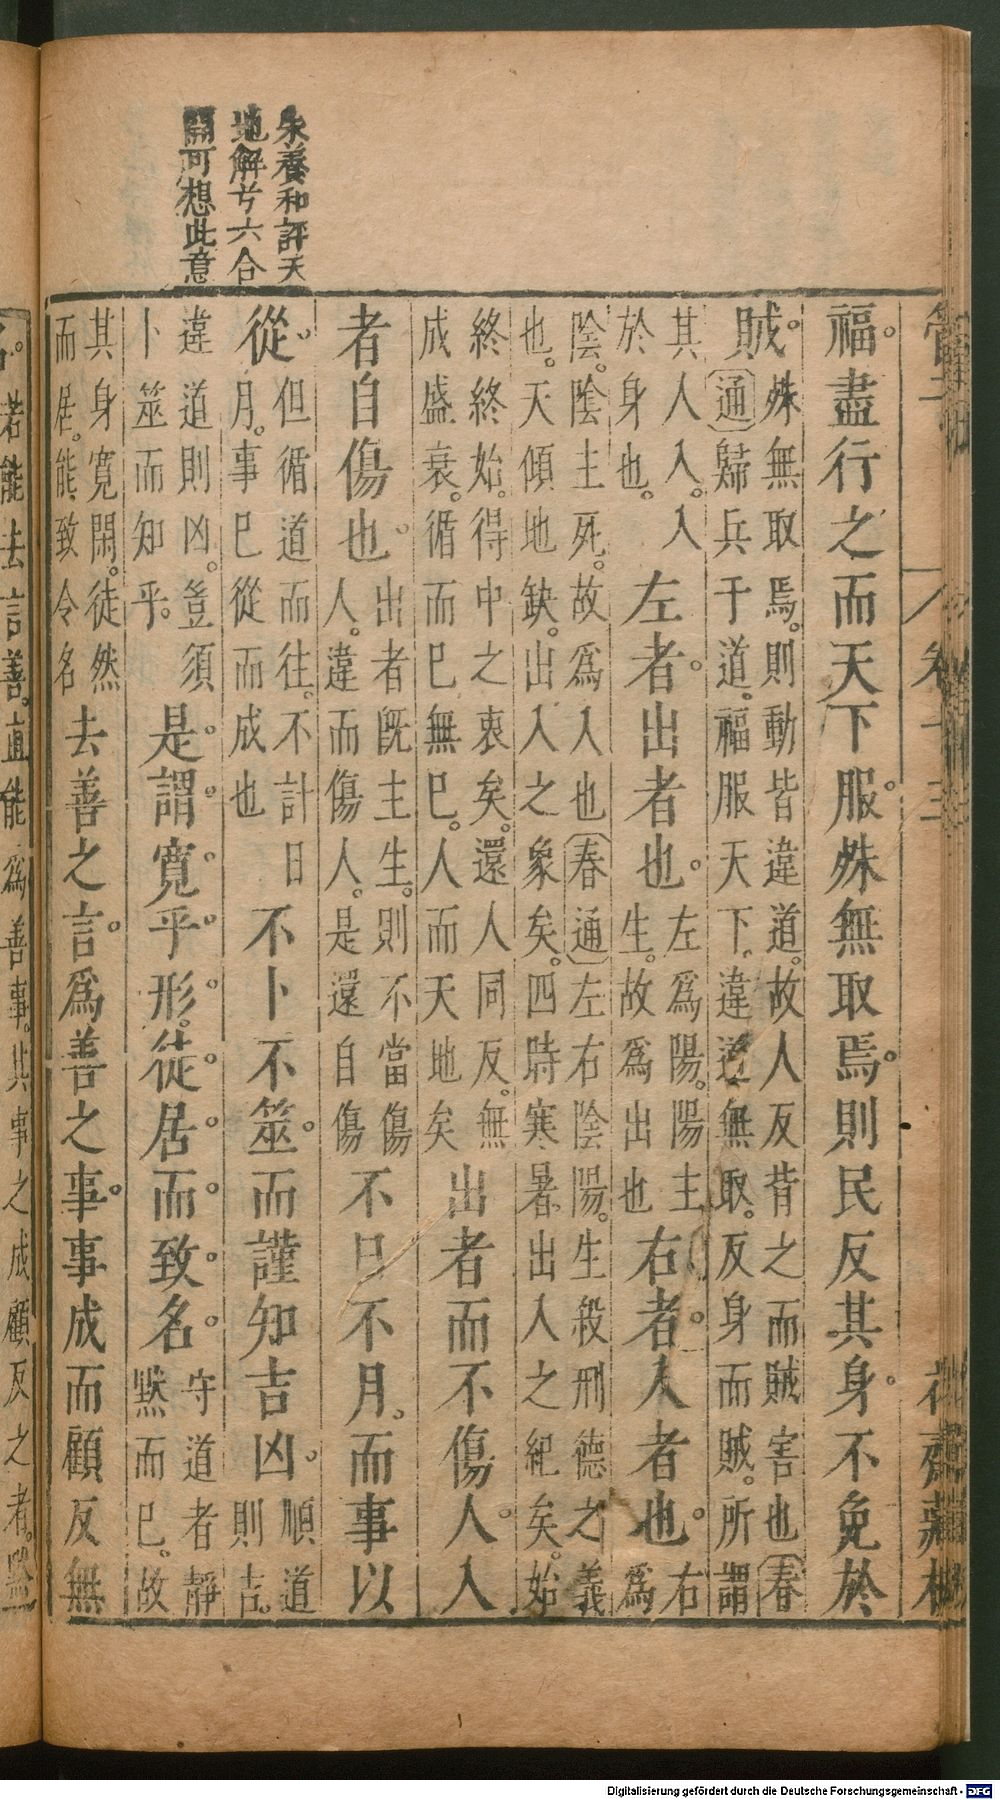 管子
卷十三
花齋藏板
福。盡行之而天下服。殊無取焉。則民反其身。不免於
賊。
殊無取焉。則動皆違道。故人反背之而賊害也春
通歸兵于道。福服天下。違道無取。反身而賊。所謂
其人入。入
於身也。
左者。出者也。
左爲陽。陽主
生。故爲出也
右者。人者也。
右
爲
陰。陰主死。故爲入也春通左右陰陽。生殺刑德之義
也。天傾地缺。出入之象矣。四時寒暑。出入之紀矣。始
終終始。得中之衷矣。還人同反。無
成盛衰。循而已無已。人而天地矣
出者而不傷人。入
者自傷也。
出者既主生。則不當傷
人。違而傷人。是還自傷
不日不月。而事以
從。
但循道而往。不計日
月。事已從而成也
不卜不筮。而謹知吉凶。
順道
則吉。
違道則凶。豈須
卜筮而知乎。
是謂寬乎形。徒居而致名。
守道者靜
默而已。故
其身寬閑。徒然
而居。能致令名
去善之言。爲善之事。事成而顧反無
朱養和評天
地解兮六合
開可想此意
名。若能去言善。直能爲善事。其事之成顧反之者。
Digitalisierung gefördert durch die Deutsche Forschungsgemeinschaft - DFG